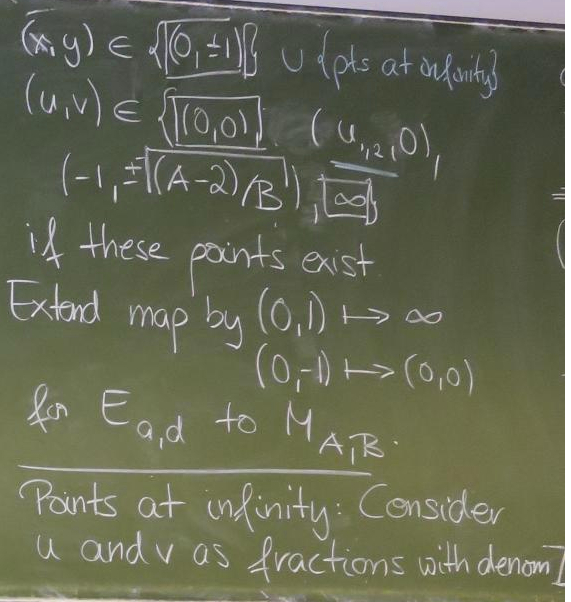 (x,y) ∈ {(0,±1)} ∪ {pts at infinity}
(u,v) ∈ {(0,0), (u₁,₂,0),
(-1,±√((A-2)/B)), ∞}
if these points exist
Extend map by (0,1) ↦ ∞
(0,-1) ↦ (0,0)
for E_{a,d} to M_{A,B}.
Points at infinity: Consider
u and v as fractions with denom